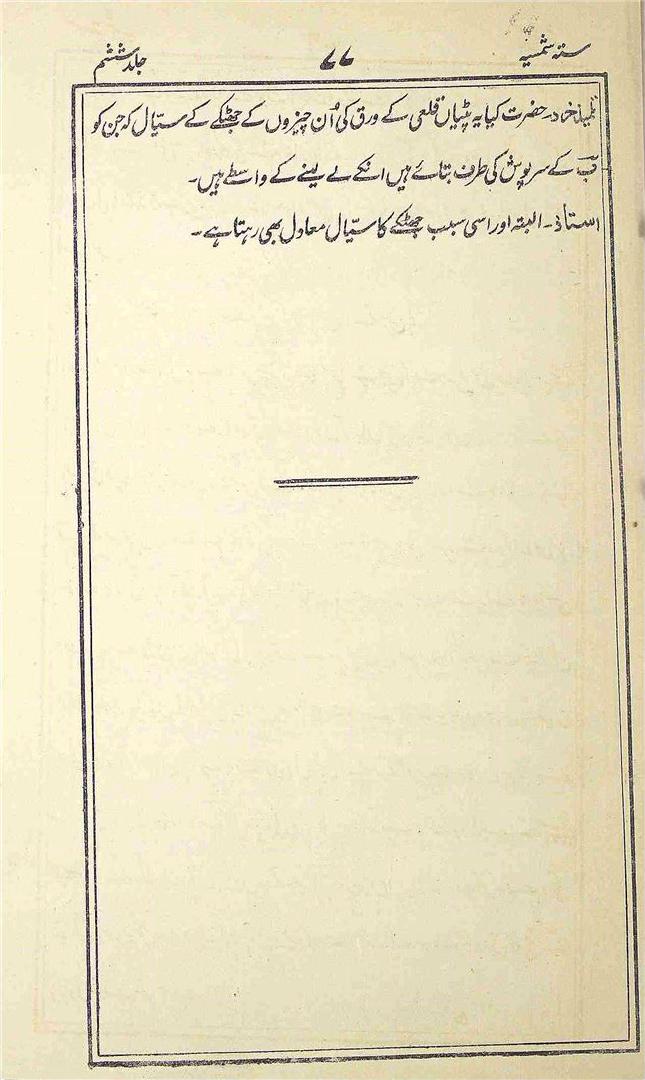 ستہ شمسیہ ۷۷ جلد ششم
تلمیذ خرد۔ حضرت کیا یہ پٹیاں قلعی کے ورق کی اُن چیزوں کے جھٹکے کے سیّال کہ جن کو
کے سرپوش کی طرف بتائے ہیں انکے لے لینے کے واسطے ہیں۔
استاذ۔ البتہ اور اسی سبب جھٹکے کا سیّال معادل بھی رہتا ہے۔